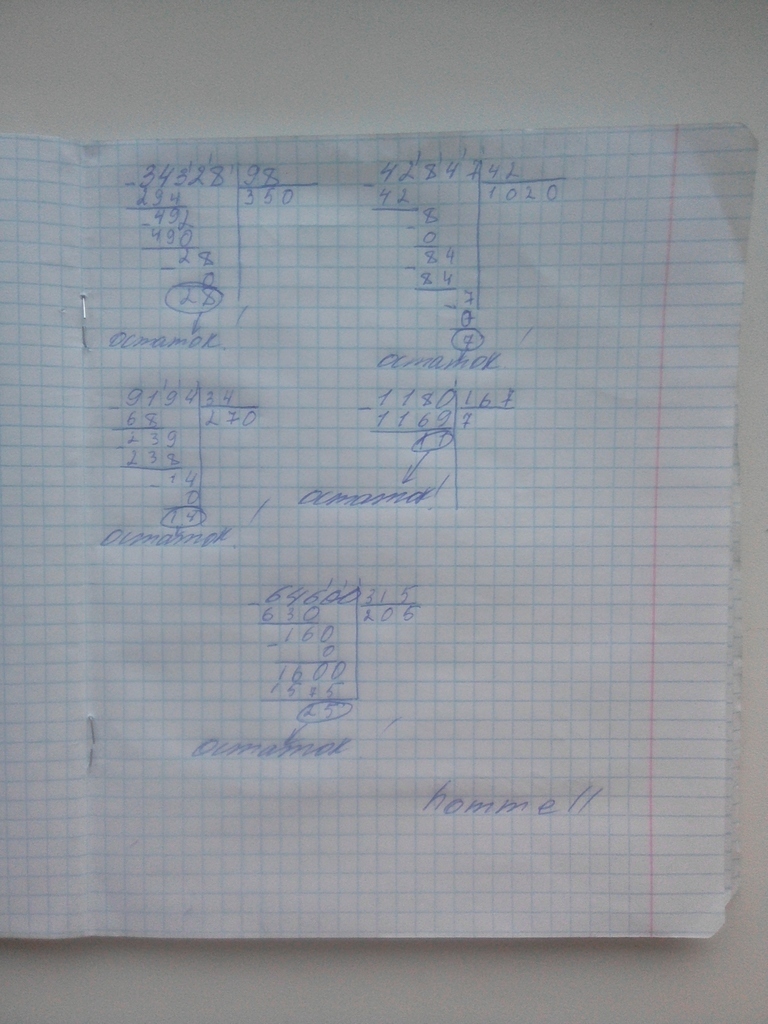 34328 98
294 350
492
490
28
0
28
остаток!
42847 42
42 1020
8
0
84
84
7
0
7
остаток!
9194 34
68 270
239
238
14
0
14
остаток!
1180 167
1169 7
11
остаток!
64600 315
630 205
160
0
1600
1575
25
остаток!
hommell